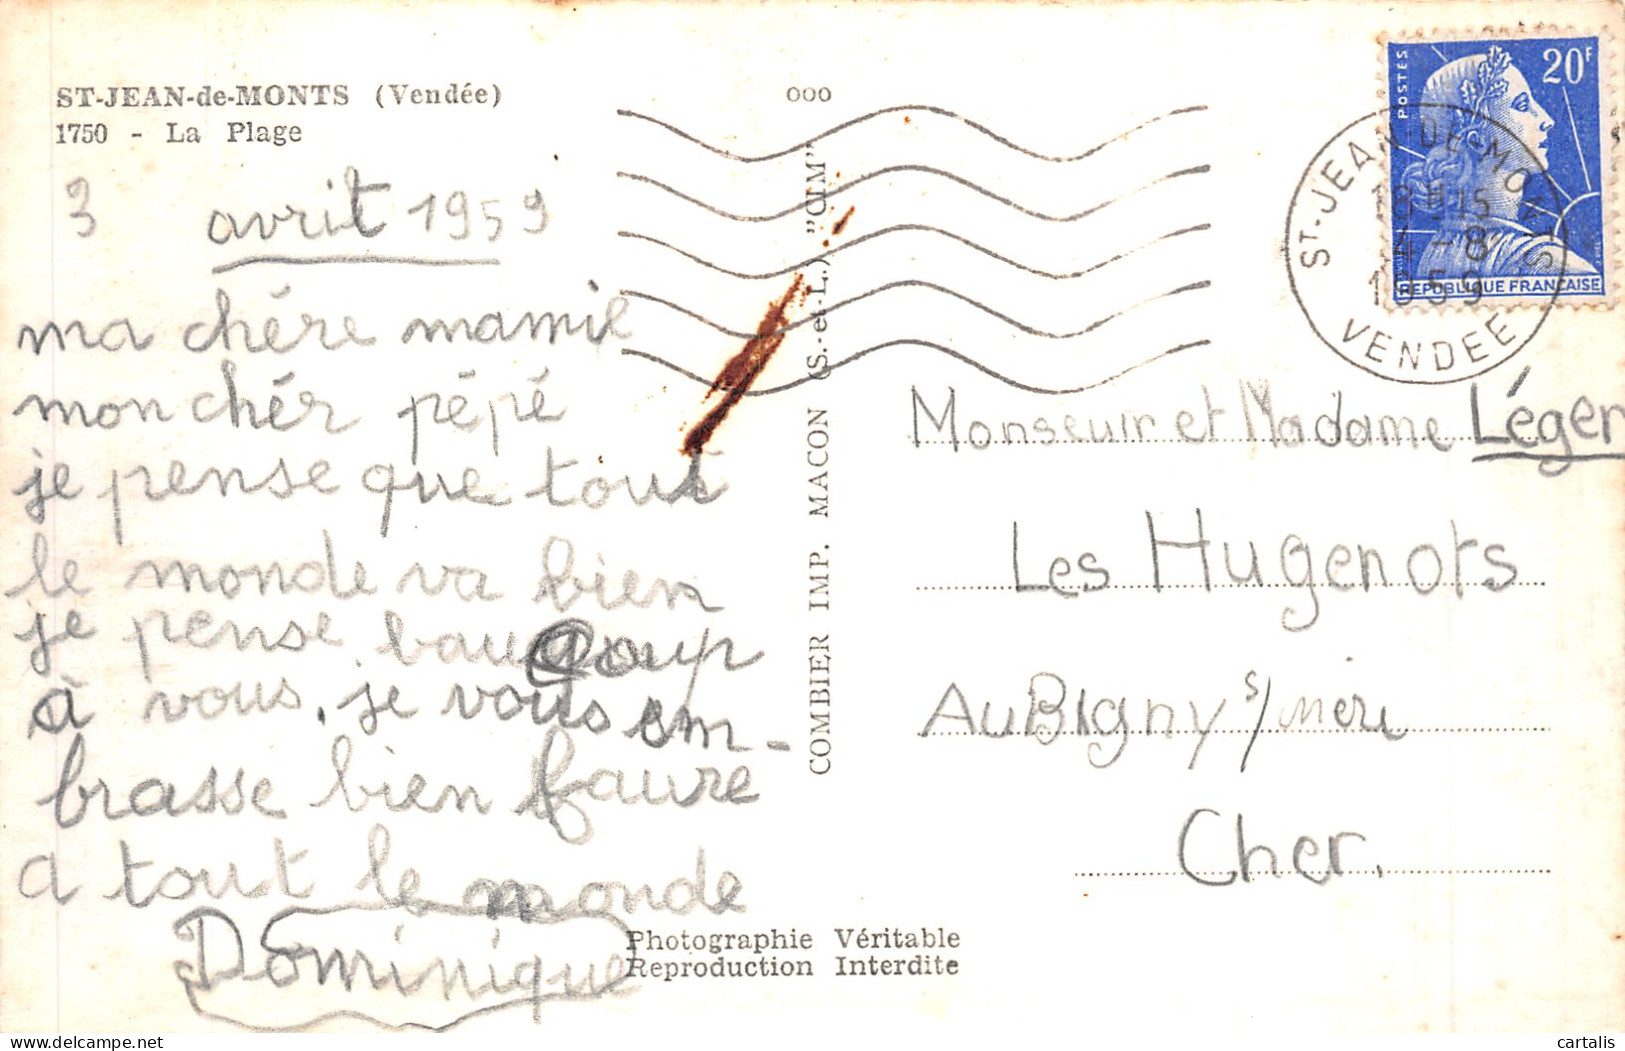 ST-JEAN-de-MONTS (Vendée)
1750 - La Plage
3 avrit 1959
ma chére mamie
mon chér pépé
je pense que tout
le monde va bien
je pense baucoup
à vous, je vous em-
brasse bien faure
a tout le monde
Dominique
ooo
COMBIER IMP. MACON (S.-et-L.) "CIM"
Photographie Véritable
Reproduction Interdite
POSTES
20F
REPUBLIQUE FRANÇAISE
ST-JEAN-DE-MONTS
18H15
4-8
1959
VENDEE
Monseuir et Madame Léger
Les Hugenots
AuBigny s/ nére
Cher.
cartalis